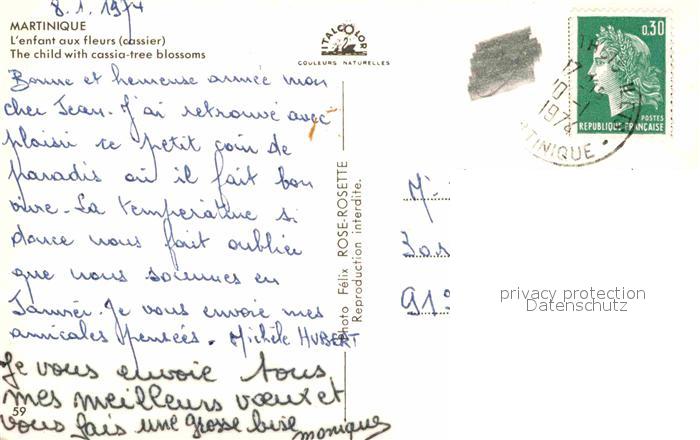 8.1.1974
MARTINIQUE
L'enfant aux fleurs (cassier)
The child with cassia-tree blossoms
ITALCOLOR
COULEURS NATURELLES
0,30
POSTES
REPUBLIQUE FRANÇAISE
17
10-1
1974
TINIQUE
Bonne et heureuse année mon
cher Jean. J'ai retrouvé avec
plaisir ce petit coin de
paradis où il fait bon
vivre. La température si
douce nous fait oublier
que nous sommes en
Janvier. Je vous envoie mes
amicales pensées. Michèle HUBERT
Je vous envoie tous
mes meilleurs vœux et
vous fais une grosse bise
Monique
59
Photo Félix ROSE-ROSETTE
Reproduction interdite.
privacy protection
Datenschutz